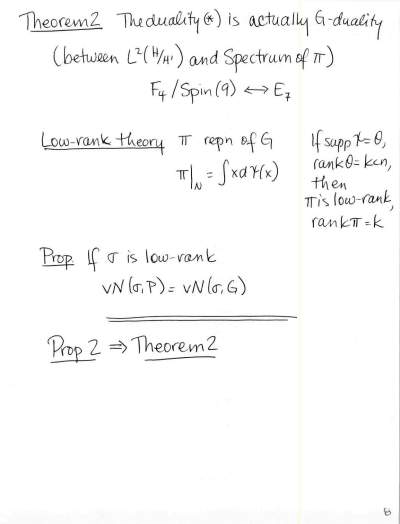 Theorem 2 The duality (*) is actually G-duality
(between L²(H/H') and Spectrum of π)
F₄/Spin(9) ↔ E₇
Low-rank theory π repn of G
π|_N = ∫χdγ(χ)
If supp γ = θ,
rank θ = k<n,
then
π is low-rank,
rank π = k
Prop If σ is low-rank
vN(σ,P) = vN(σ,G)
Prop 2 ⇒ Theorem 2